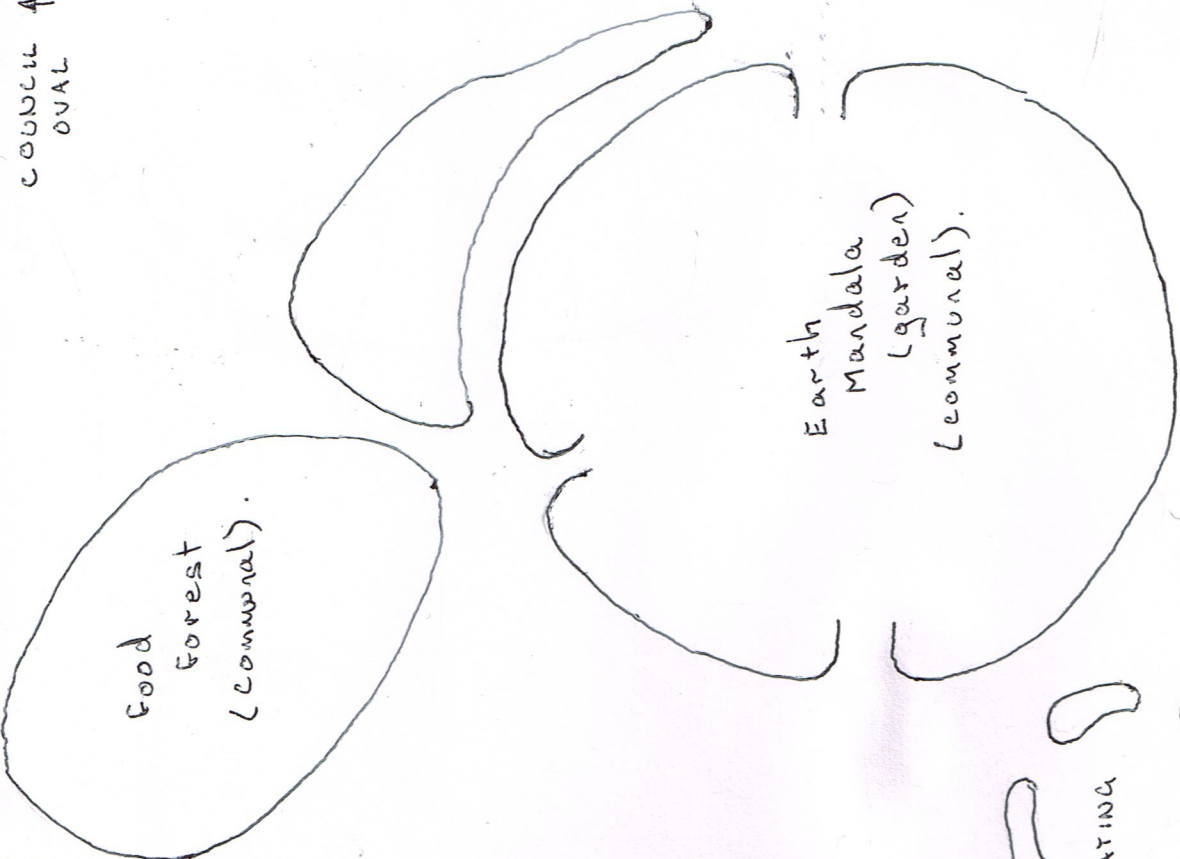 COUNCIL
OVAL
Food
Forest
(communal).
Earth
Mandala
(garden)
(communal).